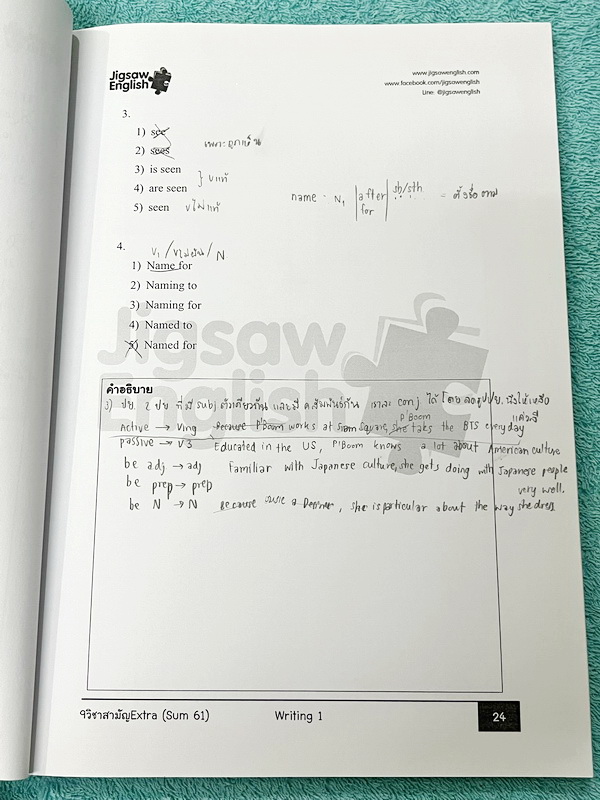 Jigsaw
English
www.jigsawenglish.com
www.facebook.com/jigsawenglish
Line: @jigsawenglish
3.
1) see
2) sees เพราะถูกเห็น
3) is seen
4) are seen } vแท้
5) seen vไม่แท้
name · N₁ | after / for | sb/sth = ตั้งชื่อตาม
4.
V₁ / Vไม่ผัน / N
1) Name for
2) Naming to
3) Naming for
4) Named to
5) Named for
Jigsaw
English
คำอธิบาย
3) ปย. 2 ปย ที่มี subj ตัวเดียวกัน และมี ค.สัมพันธ์กัน เราละ conj ได้ โดย ลดรูปปย. นึงให้เหลือ
แค่วลี
P'Boom
Active → Ving Because P'Boom works at Siam Square, she takes the BTS everyday
passive → V3 Educated in the US, P'Boom knows a lot about American culture
be adj → adj Familiar with Japanese culture, she gets doing with Japanese people
be prep → prep very well.
be N → N Because she's a Designer, she is particular about the way she dress
9วิชาสามัญExtra (Sum 61)
Writing 1
24